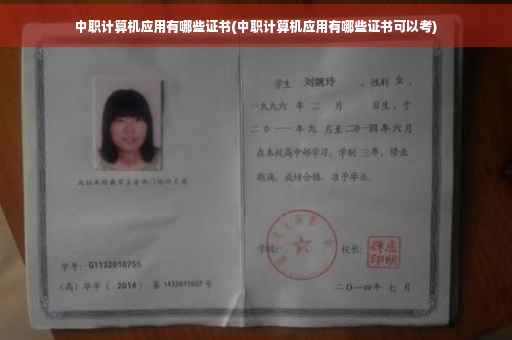 中职计算机应用有哪些证书(中职计算机应用有哪些证书可以考)
学生 刘婉玲 ，性别 女 ，
一九九六 年 二 月 日生，于
二0一一 年 九 月至 二0一四 年 六 月
在本校高中部学习，学制 三 年，修业
期满，成绩合格，准予毕业。
学号： G1132010755
(高) 毕字 ( 2014 ) 第 1432011027 号
学校：
校长：
二〇一四年 七 月